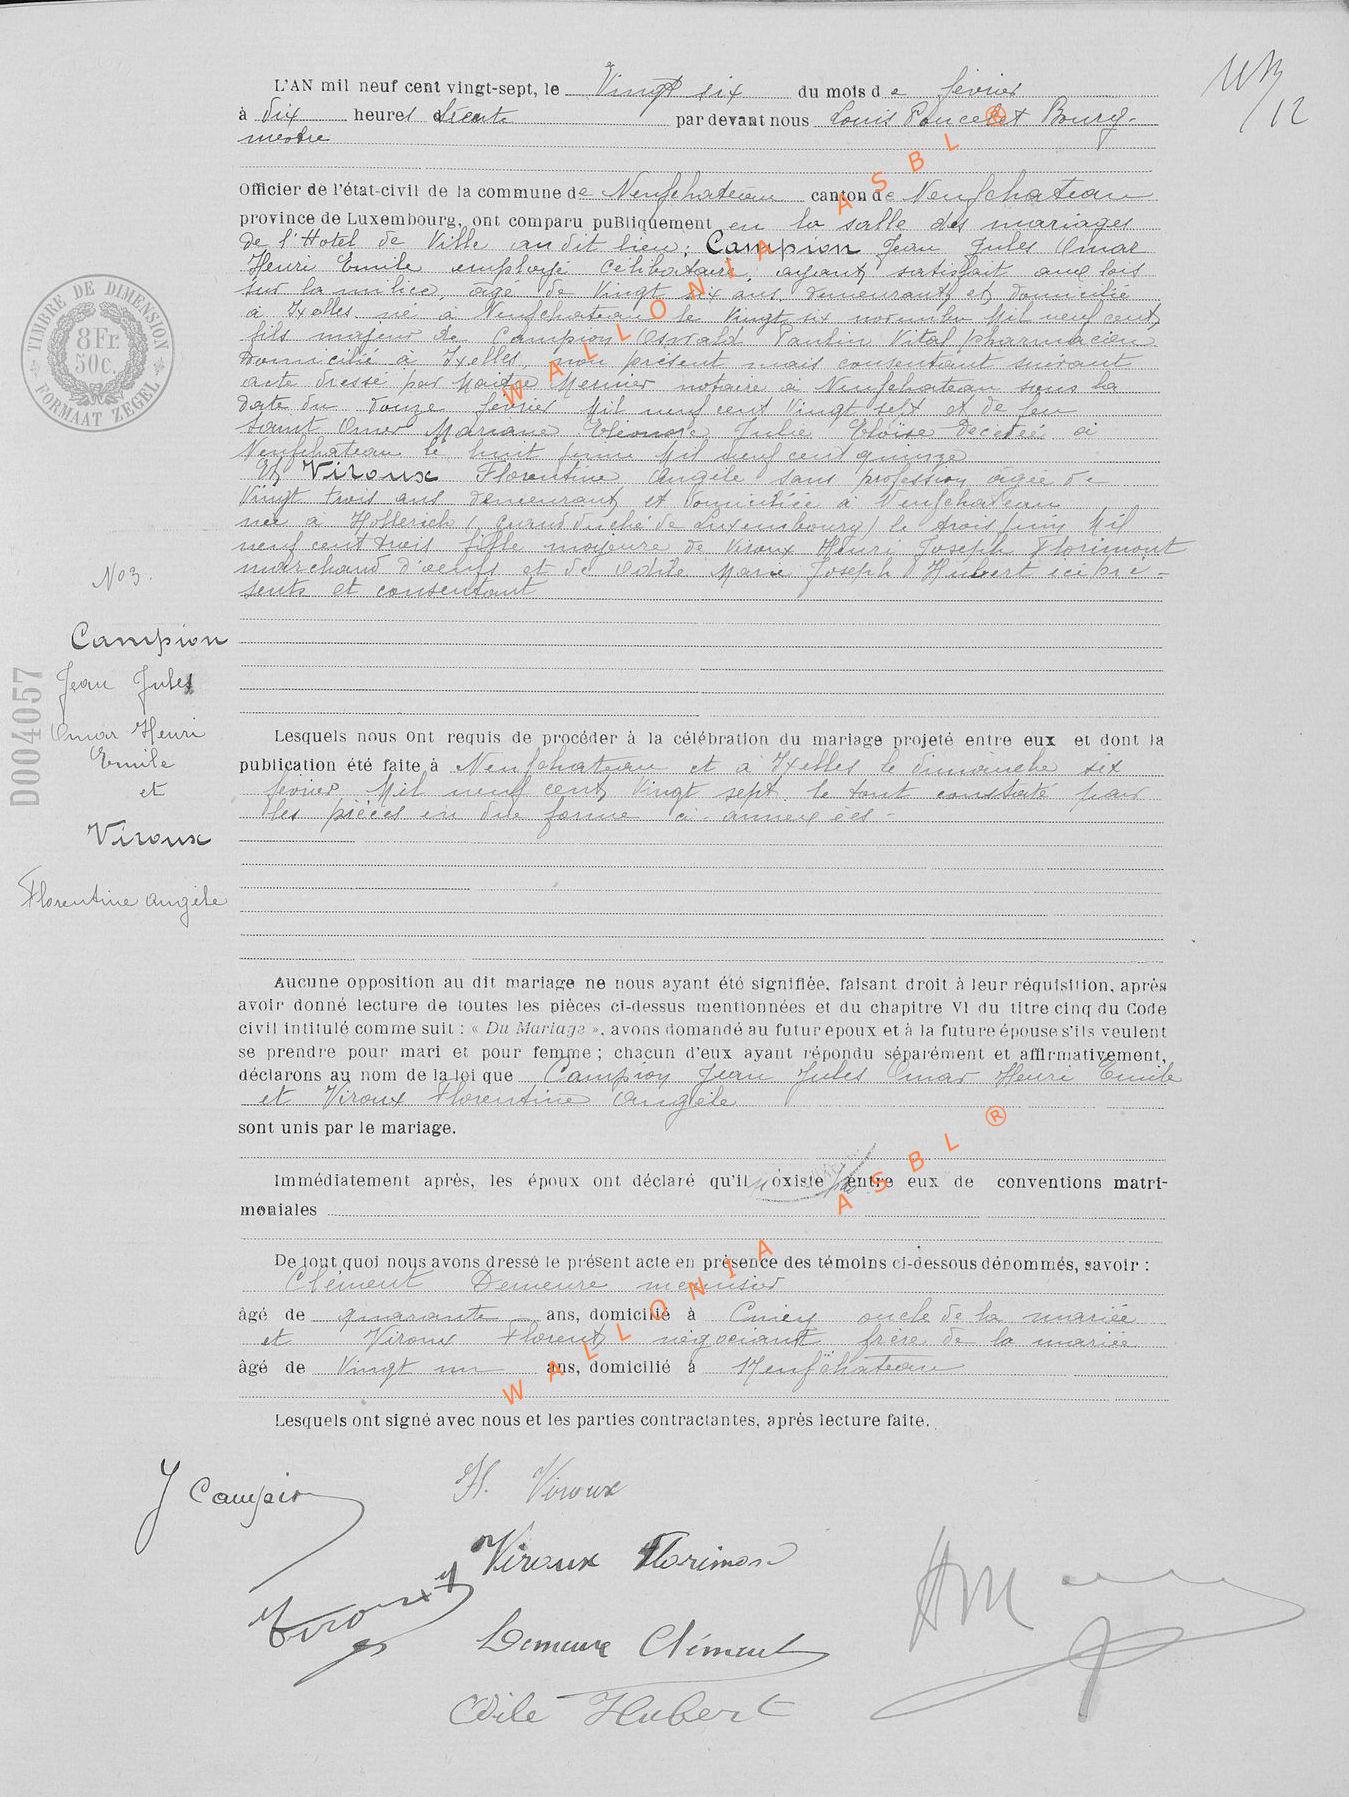 L'AN mil neuf cent vingt-sept, le Vingt six du mois de février
à dix heures trente par devant nous Louis Poncelet Bourg-
mestre
Officier de l'état-civil de la commune de Neufchateau canton de Neufchateau
province de Luxembourg, ont comparu puBliquement en la salle des mariages
de l'Hotel de Ville au dit lieu; Campion Jean Jules Omar
Henri Emile employé célibataire, ayant satisfait aux lois
sur la milice, âgé de Vingt six ans, demeurant et domicilié
à Ixelles né à Neufchateau le Vingt six novembre Mil neuf cent
fils majeur de Campion Oswald Vital pharmacien
domicilié à Ixelles, non présent mais consentant suivant
acte dressé par Maitre Mernier notaire à Neufchateau sous la
date du douze février Mil neuf cent Vingt sept et de feu
Saint Omer Mariane Eléonore Julie Eloïse décédée à
Neufchateau le huit Mil neuf cent quinze
Et Viroux Florentine Angèle sans profession âgée de
Vingt trois ans demeurant et domiciliée à Neufchateau
née à Hollerich (Grand duché de Luxembourg) le trois juin Mil
neuf cent trois fille majeure de Viroux Henri Joseph Florimont
marchand d'oeufs et de Odile Marie Joseph Hubert ici pré-
sents et consentant
No 3.
Campion
Jean Jules
Omar Henri
Emile
et
Viroux
Florentine Angèle
TIMBRE DE DIMENSION
8 Fr.
50c.
FORMAAT ZEGEL
D004057
Lesquels nous ont requis de procéder à la célébration du mariage projeté entre eux et dont la
publication été faite à Neufchateau et à Ixelles le dimanche six
février Mil neuf cent Vingt sept. le tout constaté par
les pièces en due forme ci-annexées -
Aucune opposition au dit mariage ne nous ayant été signifiée, faisant droit à leur réquisition, après
avoir donné lecture de toutes les pièces ci-dessus mentionnées et du chapitre VI du titre cinq du Code
civil intitulé comme suit : « Du Mariage », avons demandé au futur epoux et à la future épouse s'ils veulent
se prendre pour mari et pour femme ; chacun d'eux ayant répondu séparément et affirmativement,
déclarons au nom de la loi que Campion Jean Jules Omar Henri Emile
et Viroux Florentine Angèle
sont unis par le mariage.
Immédiatement après, les époux ont déclaré qu'il existe entre eux de conventions matri-
moniales
De tout quoi nous avons dressé le présent acte en présence des témoins ci-dessous dénommés, savoir :
Clément Demeure menuisier
âgé de quarante ans, domicilié à Ciney oncle de la mariée
et Viroux Florent négociant frère de la mariée
âgé de Vingt un ans, domicilié à Neufchateau
Lesquels ont signé avec nous et les parties contractantes, après lecture faite.
J Campion
H. Viroux
Viroux Florimond
Viroux
Demeure Clément
Odile Hubert
WALLONIA ASBL ®
WALLONIA ASBL ®